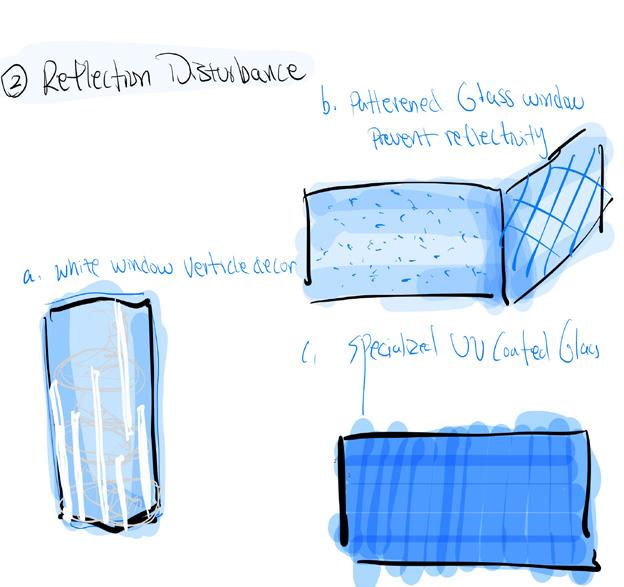 ② Reflection Disturbance
b. Patterened Glass window
Prevent reflectivity
a. White window Verticle decor
c. Specialized UV Coated Glass